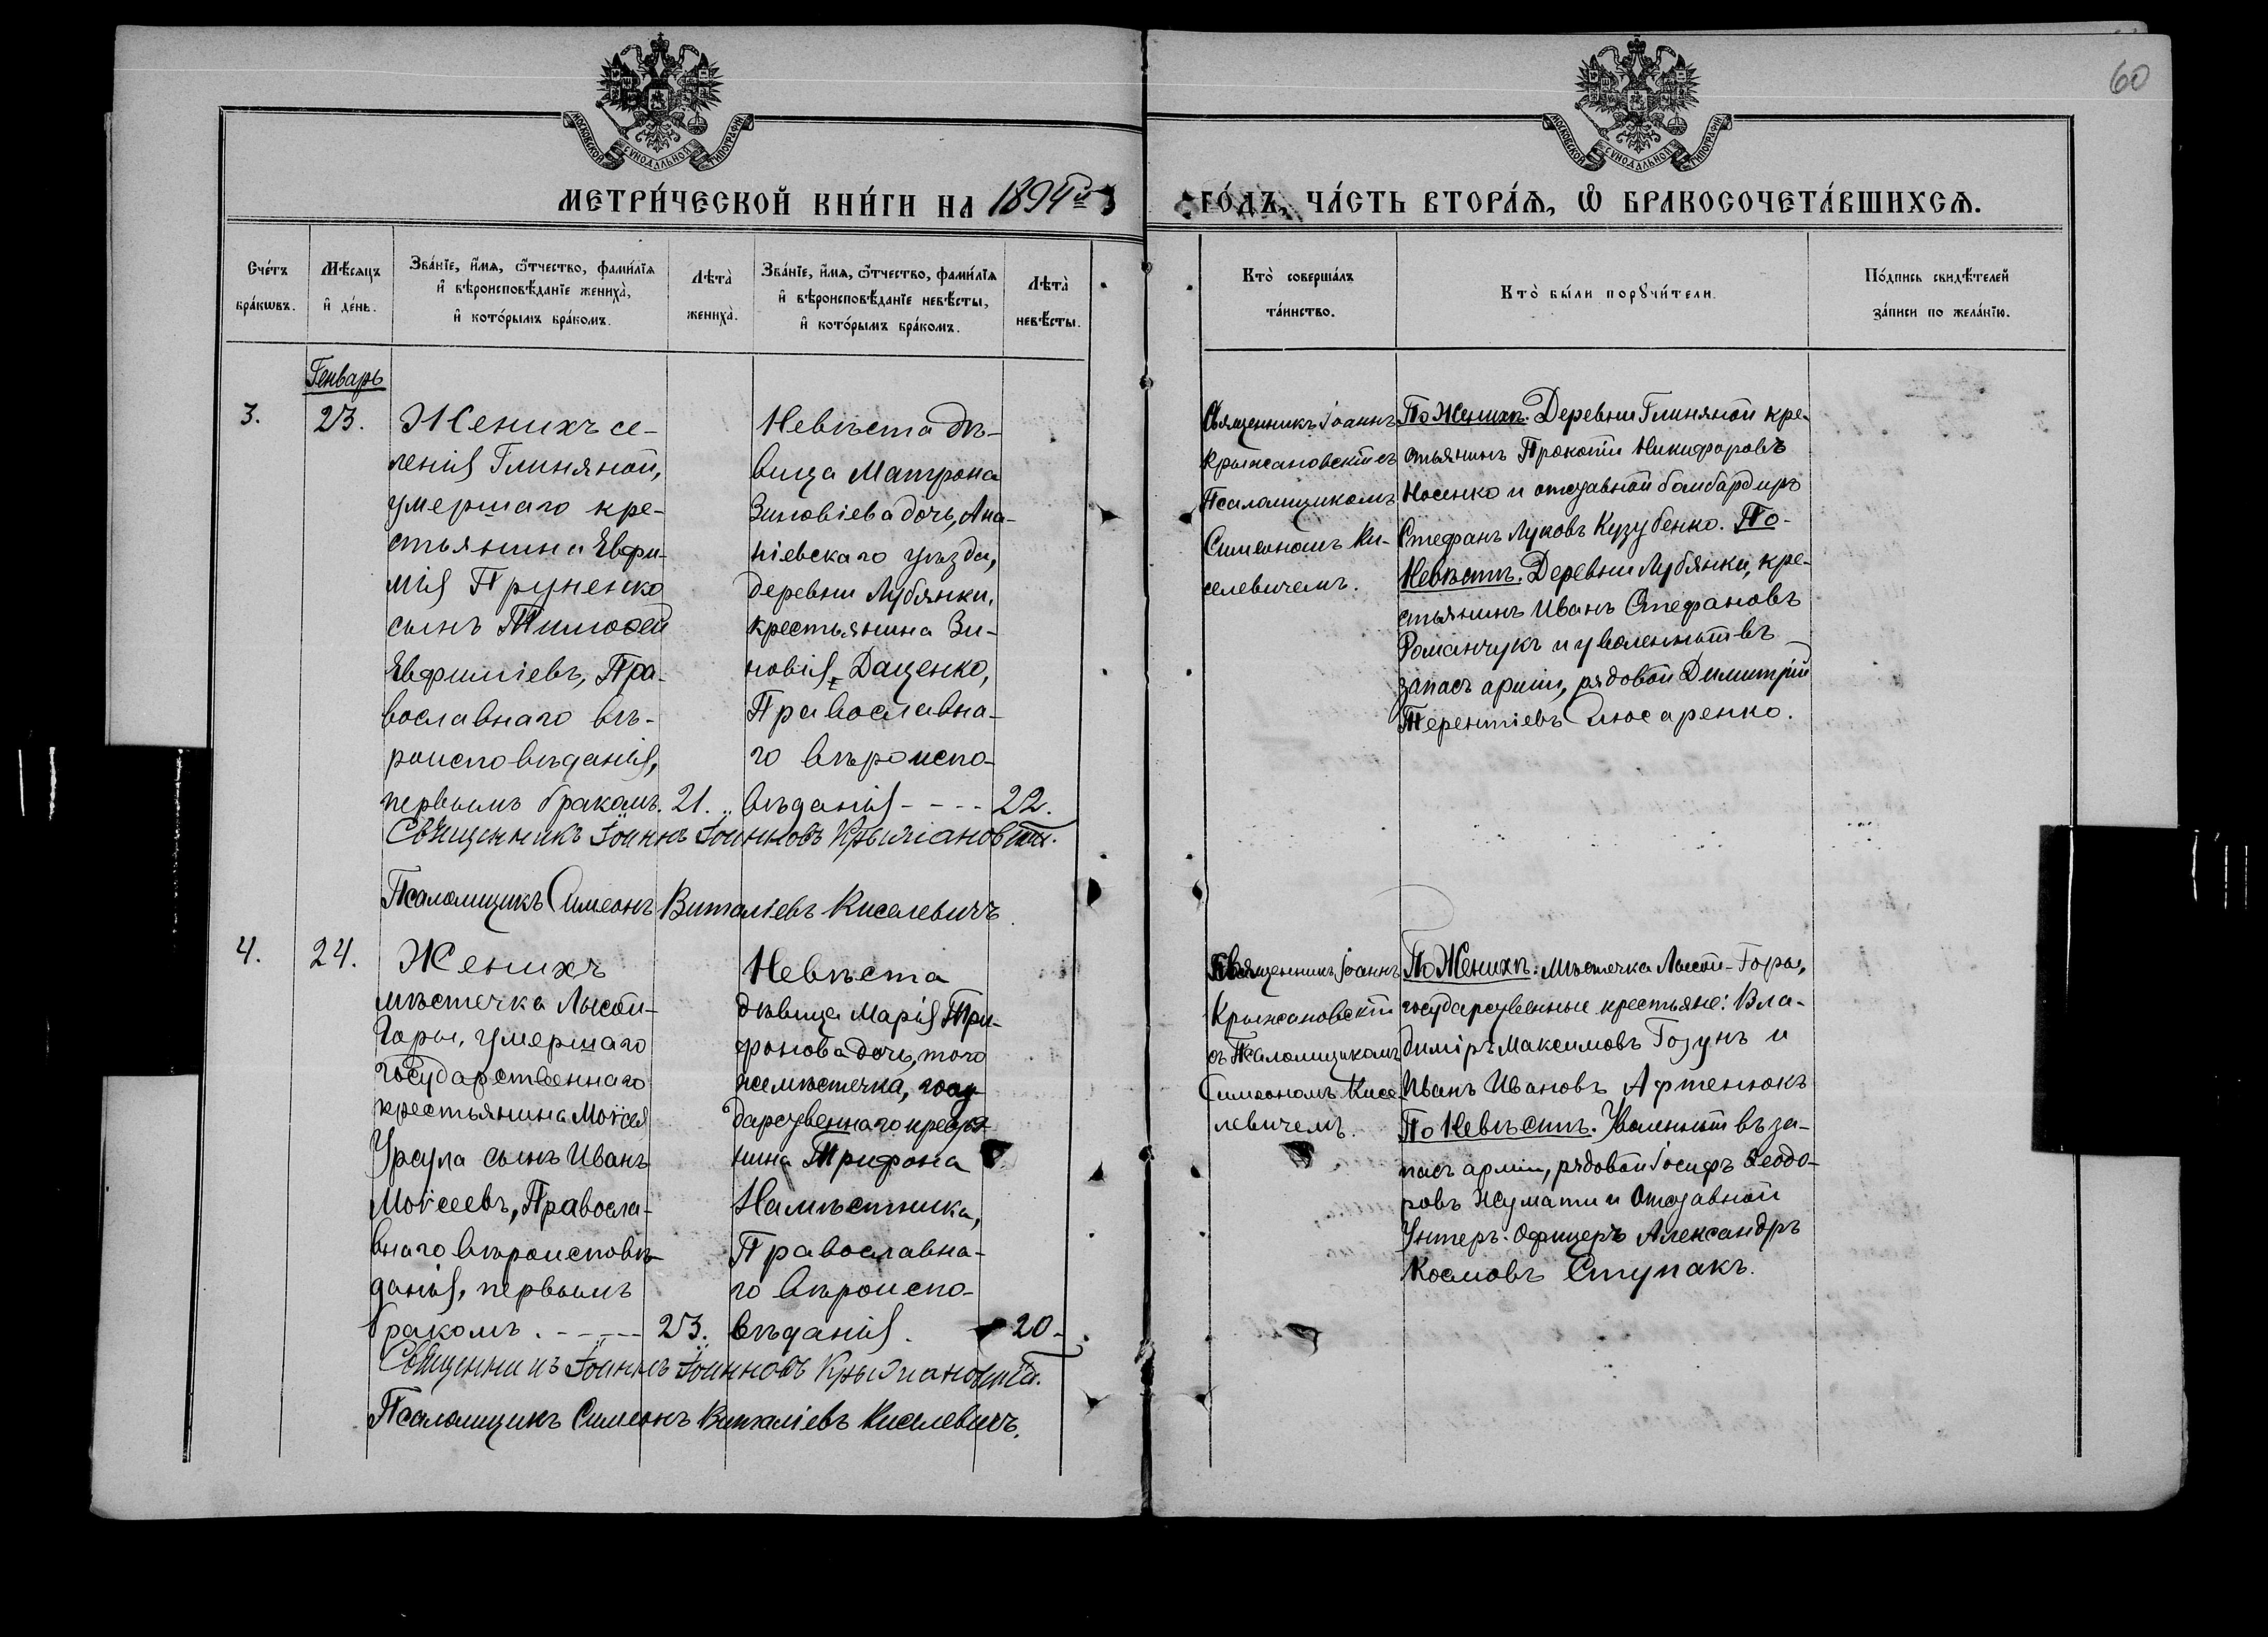 60
МОСКОВСКОЙ СѴНОДАЛЬНОЙ ТИПОГРАФІИ
МОСКОВСКОЙ СѴНОДАЛЬНОЙ ТИПОГРАФІИ
МЕТРИ́ЧЕСКОЙ КНИ́ГИ НА 1894й
ГО́ДЪ, ЧА́СТЬ ВТОРА́Ѧ, Ѽ БРАКОСОЧЕТА́ВШИХСѦ.
Сче́тъ
бра́кѡвъ.
Мѣ́сѧцъ
и҆ де́нь.
Зва́нїе, и҆́мѧ, ѻ҆́тчество, фамилїѧ
и҆ вѣроисповѣ́данїе жениха̀,
и҆ кото́рымъ бра́комъ.
Лѣта̀
жениха̀.
Зва́нїе, и҆́мѧ, ѻ҆́тчество, фамилїѧ
и҆ вѣроисповѣ́данїе невѣ́сты,
и҆ кото́рымъ бра́комъ.
Лѣта̀
невѣ́сты.
Кто̀ соверша́лъ
та́инство.
Кто̀ бы́ли порꙋчи́тели.
По́дпись свидѣ́телей
за́писи по жела́нїю.
Генварь
3.
23.
Женихъ се-
ленія Глиняной,
умершаго кре-
стьянина Евфи-
мія Пруненко
сынъ Тимоѳей
Евфиміевъ, Пра-
вославнаго вѣ-
роисповѣданія,
первымъ бракомъ. 21.
Невѣста дѣ-
вица Матрона
Зиновіева дочь, Ана-
ніевскаго уѣзда,
деревни Лубянки,
крестьянина Зи-
новія Даценко,
Православна-
го вѣроиспо-
вѣданія - - - - 22.
Священникъ Іоаннъ
Крыжановскій съ
Псаломщикомъ
Симеономъ Ки-
селевичемъ.
По Женихѣ. Деревни Глиняной кре-
стьянинъ Прокопій Никифоровъ
Носенко и отставной бомбардиръ
Стефанъ Луковъ Кузубенко. По-
Невѣстѣ. Деревни Лубянки, кре-
стьянинъ Иванъ Стефановъ
Романчукъ и уволенный въ
запасъ арміи, рядовой Димитрій
Терентіевъ Слюсаренко.
Священникъ Іоаннъ Іоанновъ Крыжановскій.
Псаломщикъ Симеонъ Виталіевъ Киселевичъ.
4.
24.
Женихъ
мѣстечка Лысой-
Горы, умершаго
государственнаго
крестьянина Моѵсея
Урсула сынъ Иванъ
Моѵсеевъ, Правосла-
внаго вѣроисповѣ-
данія, первымъ
бракомъ. - - - - 23.
Невѣста
дѣвица Марія Три-
фонова дочь, того
же мѣстечка, госу-
дарственнаго крестья-
нина Трифона
Намѣстника,
Православна-
го вѣроиспо-
вѣданія. - 20 -
Священникъ Іоаннъ
Крыжановскій
съ Псаломщикомъ
Симеономъ Кисе-
левичемъ.
По Женихѣ: мѣстечка Лысой-Горы,
государственные крестьяне: Вла-
диміръ Максимовъ Гозунъ и
Иванъ Ивановъ Афтенюкъ
По Невѣстѣ. Уволенный въ за-
пасъ арміи, рядовой Іосифъ Ѳеодо-
ровъ Жумати и Отставной
Унтеръ-Офицеръ Александръ
Космовъ Ступакъ.
Священникъ Іоаннъ Іоанновъ Крыжановскій.
Псаломщикъ Симеонъ Виталіевъ Киселевичъ.